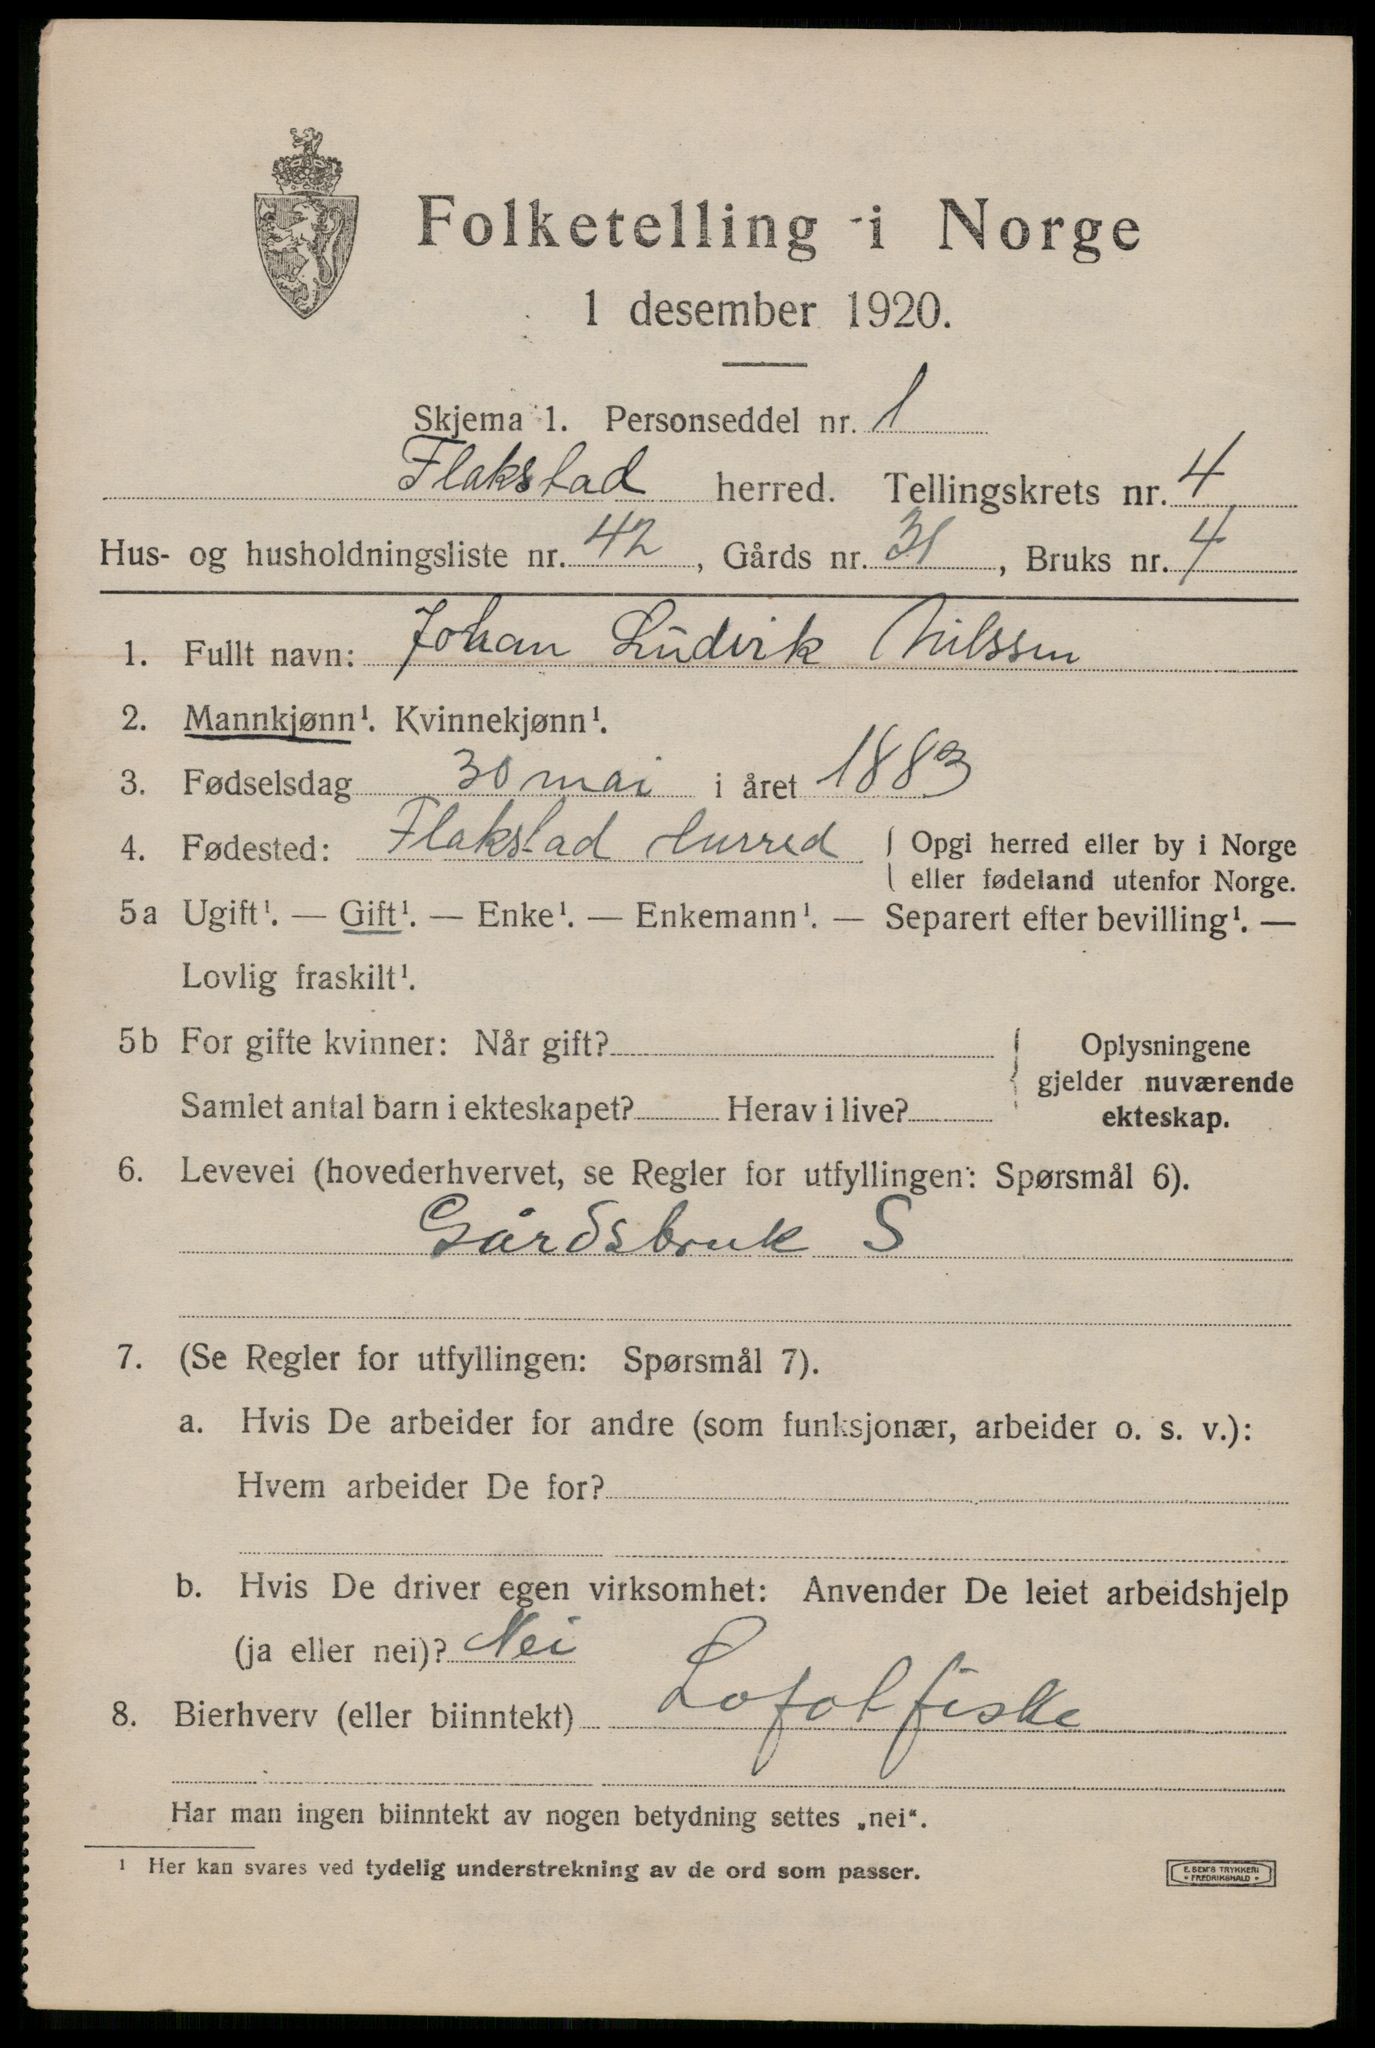 Folketelling i Norge
1 desember 1920.
Skjema 1. Personseddel nr. 1
Flakstad herred. Tellingskrets nr. 4
Hus- og husholdningsliste nr. 42, Gårds nr. 31, Bruks nr. 4
1. Fullt navn: Johan Ludvik Nilssen
2. Mannkjønn¹. Kvinnekjønn¹.
3. Fødselsdag 30 mai i året 1883
4. Fødested: Flakstad herred { Opgi herred eller by i Norge
eller fødeland utenfor Norge.
5a Ugift¹. — Gift¹. — Enke¹. — Enkemann¹. — Separert efter bevilling¹. —
Lovlig fraskilt¹.
5b For gifte kvinner: Når gift? { Oplysningene
gjelder nuværende
Samlet antal barn i ekteskapet? Herav i live? ekteskap.
6. Levevei (hovederhvervet, se Regler for utfyllingen: Spørsmål 6).
Gårdsbruk S
7. (Se Regler for utfyllingen: Spørsmål 7).
a. Hvis De arbeider for andre (som funksjonær, arbeider o. s. v.):
Hvem arbeider De for?
b. Hvis De driver egen virksomhet: Anvender De leiet arbeidshjelp
(ja eller nei)? Nei
8. Bierhverv (eller biinntekt) Lofotfiske
Har man ingen biinntekt av nogen betydning settes „nei“.
¹ Her kan svares ved tydelig understrekning av de ord som passer.
E. SEM'S TRYKKERI
• FREDRIKSHALD •